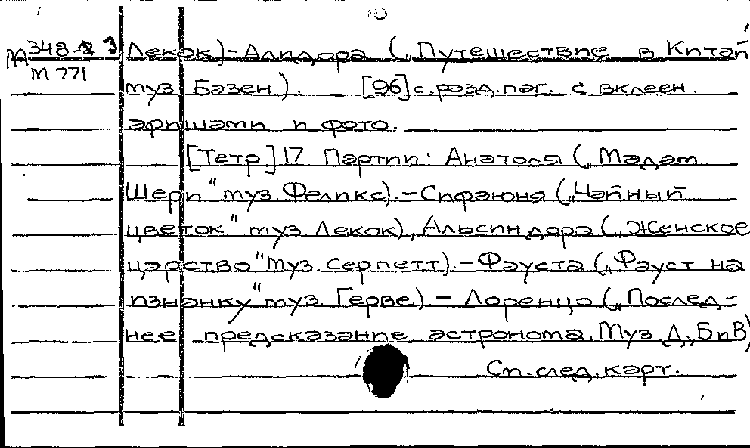 М 348 & 3 Лекок)-Алидора („Путешествие в Китай
М 771
муз Базен). [96] с. разд. паг. с вклеен.
афишами и фото.
[Тетр] 17. Партии: Анатоля („Мадам
Шерп" муз. Феликс).-Сифаюна („Чайный
цветок" муз Лекок), Альсиндора („Женское
царство" муз. Серпетт).-Фауста („Фауст на
изнанку" муз. Герве) - Лоренцо („Послед-
нее предсказание астронома. Муз. Д., Б и В)
См. след. карт.